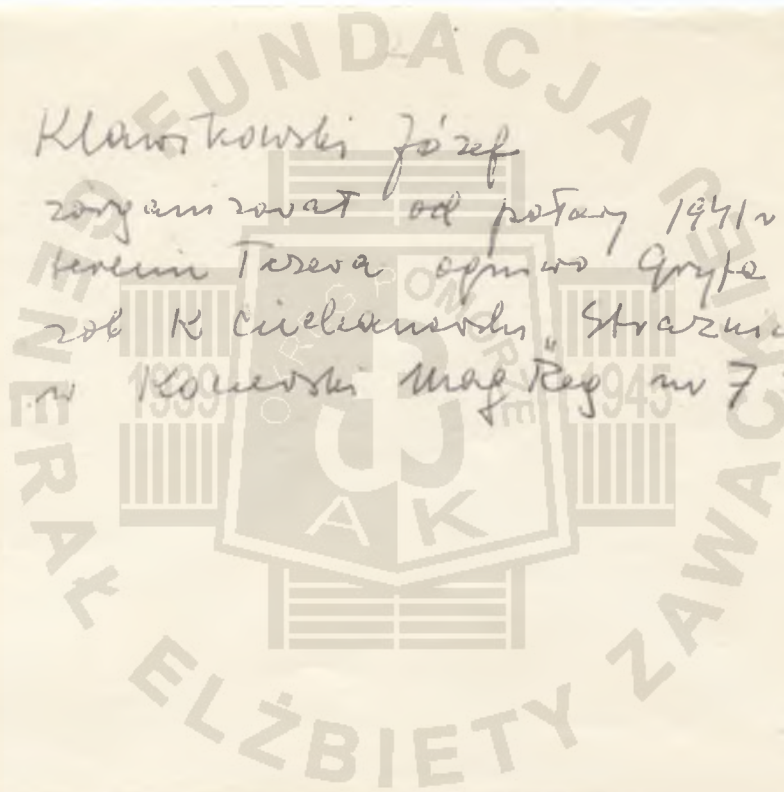 Klawikowski Józef
zorganizował od połowy 1941 r
terenie Tczewa ogniwo Gryfa
zob K Ciechanowski "Straznic
w Kociewski Mag Reg nr 7
FUNDACJA GENERAŁ ELŻBIETY ZAWACKIEJ
OKRĘG POMORZE
1939 1945
AK